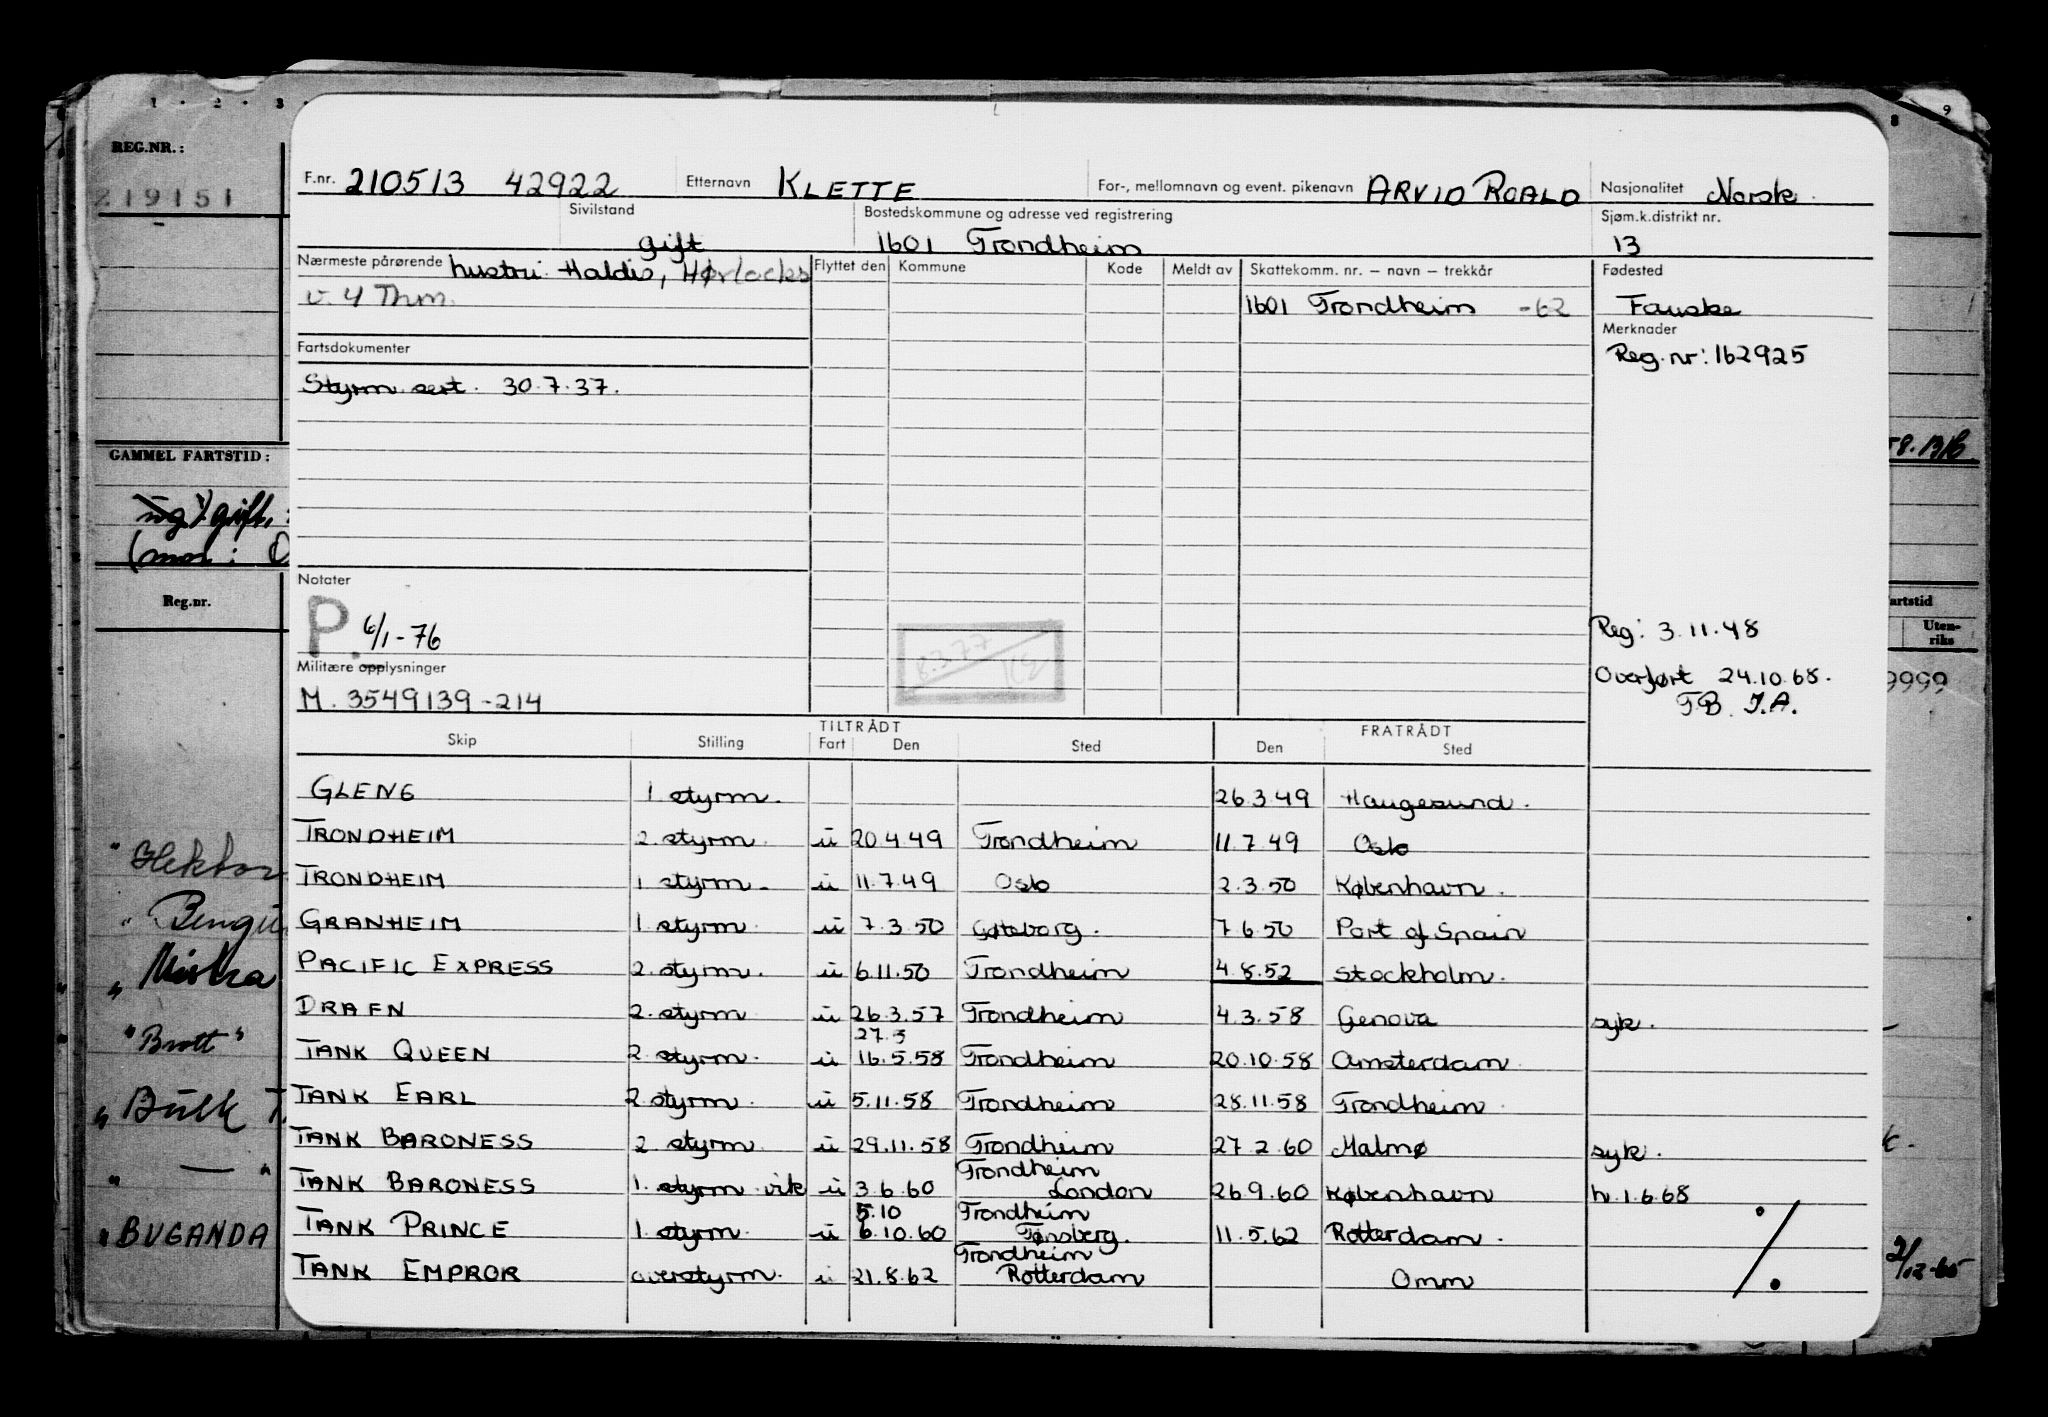 1 · 2 · 3 ·
8 9
REG.NR.:
219151
GAMMEL FARTSTID:
ug. gift,
(mor:
Reg.nr.
" Hektor
" Mistra
" Brott "
" BULK T
" — "
" BUGANDA
F.nr. 210513 42922 Etternavn KLETTE For-, mellomnavn og event. pikenavn ARVID ROALD Nasjonalitet Norsk.
Sivilstand Bostedskommune og adresse ved registrering Sjøm.k.distrikt nr.
gift 1601 Trondheim 13
Nærmeste pårørende hustru: Haldis, Hørlocks Flyttet den Kommune Kode Meldt av Skattekomm. nr. – navn – trekkår Fødested
v. 4 Thm. 1601 Trondheim -62 Fauske
Merknader
Fartsdokumenter Reg.nr: 162925
Styrm sert. 30.7.37.
Notater
P. 6/1-76 Reg: 3.11.48
8.377 KE
Militære opplysninger Overført 24.10.68.
M. 3549139-214 T.B. I.A.
TILTRÅDT FRATRÅDT
Skip Stilling Fart Den Sted Den Sted
GLENG 1. styrm. 26.3.49 Haugesund.
TRONDHEIM 2. styrm. u 20.4.49 Trondheim 11.7.49 Oslo
TRONDHEIM 1. styrm. u 11.7.49 Oslo 2.3.50 København.
GRANHEIM 1. styrm. u 7.3.50 Gøteborg. 7.6.50 Port of Spain
PACIFIC EXPRESS 2. styrm. u 6.11.50 Trondheim 4.8.52 Stockholm.
DRAFN 2. styrm u 26.3.57 Trondheim 4.3.58 Genova syk.
27.3
TANK QUEEN 2. styrm. u 16.5.58 Trondheim 20.10.58 Amsterdam
TANK EARL 2. styrm. u 5.11.58 Trondheim 28.11.58 Trondheim
TANK BARONESS 2. styrm. u 29.11.58 Trondheim 27.2.60 Malmø syk.
Trondheim
TANK BARONESS 1. styrm. vik u 3.6.60 London 26.9.60 København h. 1.6.68
5.10 Trondheim
TANK PRINCE 1. styrm. u 6.10.60 Tønsberg. 11.5.62 Rotterdam.
Trondheim
TANK EMPROR overstyrm. u 21.8.62 Rotterdam Omm
./.
artstid
Uten-
riks
9999
2/12-65